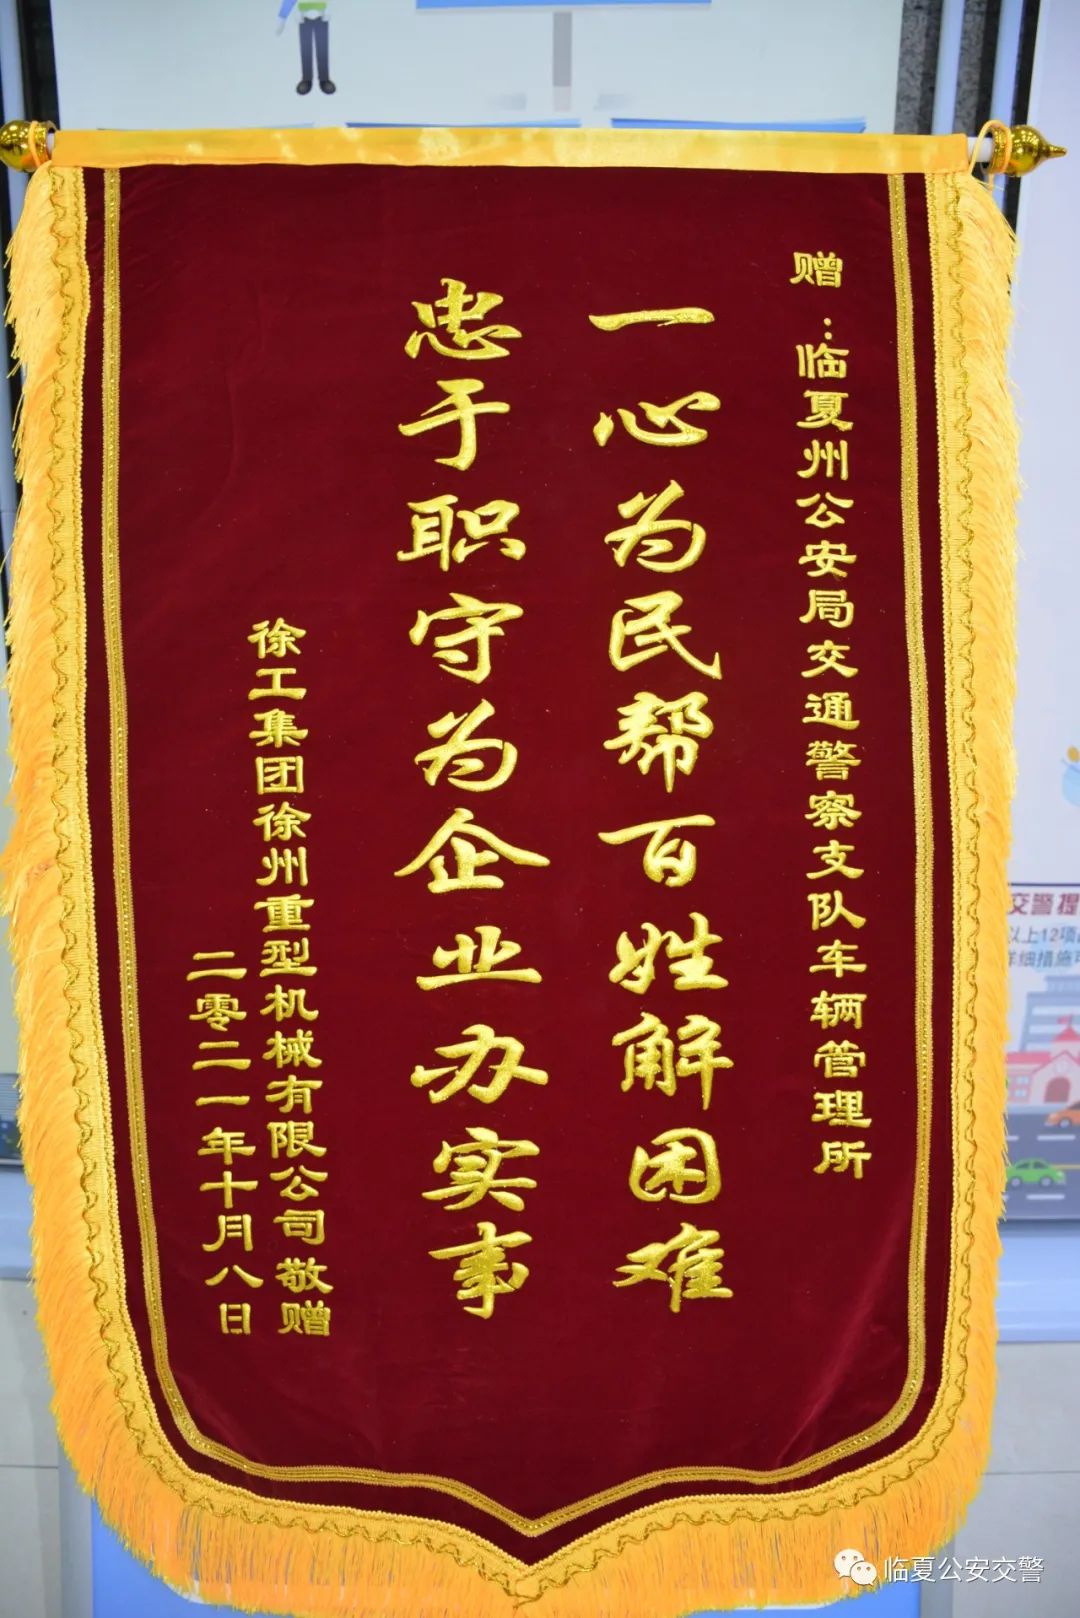 赠：临夏州公安局交通警察支队车辆管理所
一心为民帮百姓解困难
忠于职守为企业办实事
徐工集团徐州重型机械有限公司敬赠
二零二一年十月八日
交警提
以上12项
详细措施可
临夏公安交警